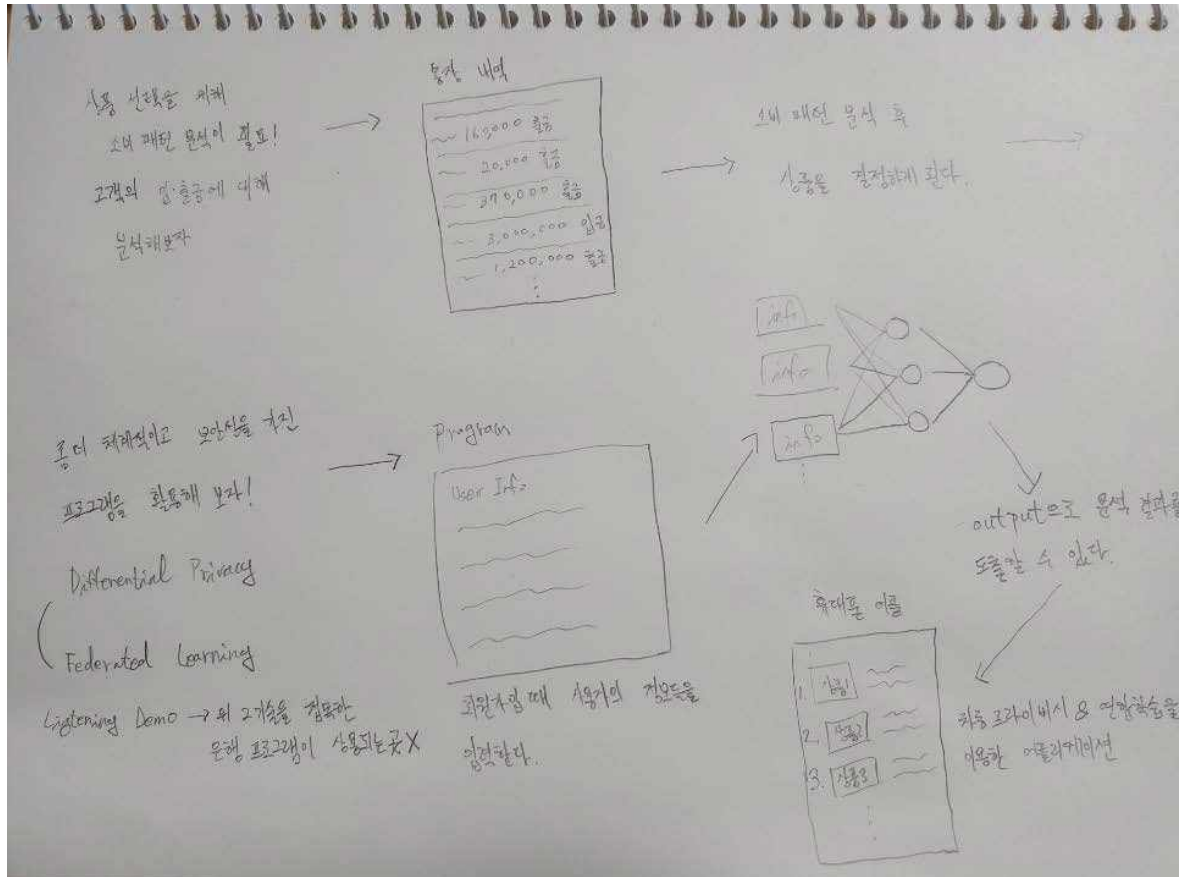 상품 선택을 위해
소비 패턴 분석이 필요!
고객의 입출금에 대해
분석해보자
통장 내역
163000 출금
20,000 출금
370,000 출금
3,000,000 입금
1,200,000 출금
소비 패턴 분석 후
상품을 결정하게 된다.
좀더 체계적이고 보안성을 추진
프로그램을 활용해 보자!
Differential Privacy
Federated Learning
Listening Demo → 위 2기술을 접목한
은행 프로그램이 상용되는 곳 X
Program
User Info
회원가입 때 사용자의 정보들을
입력한다.
info
info
info
output으로 분석 결과를
도출할 수 있다.
휴대폰 어플
1. 상품1
2. 상품2
3. 상품3
차등 프라이버시 & 연합학습을
이용한 어플리케이션